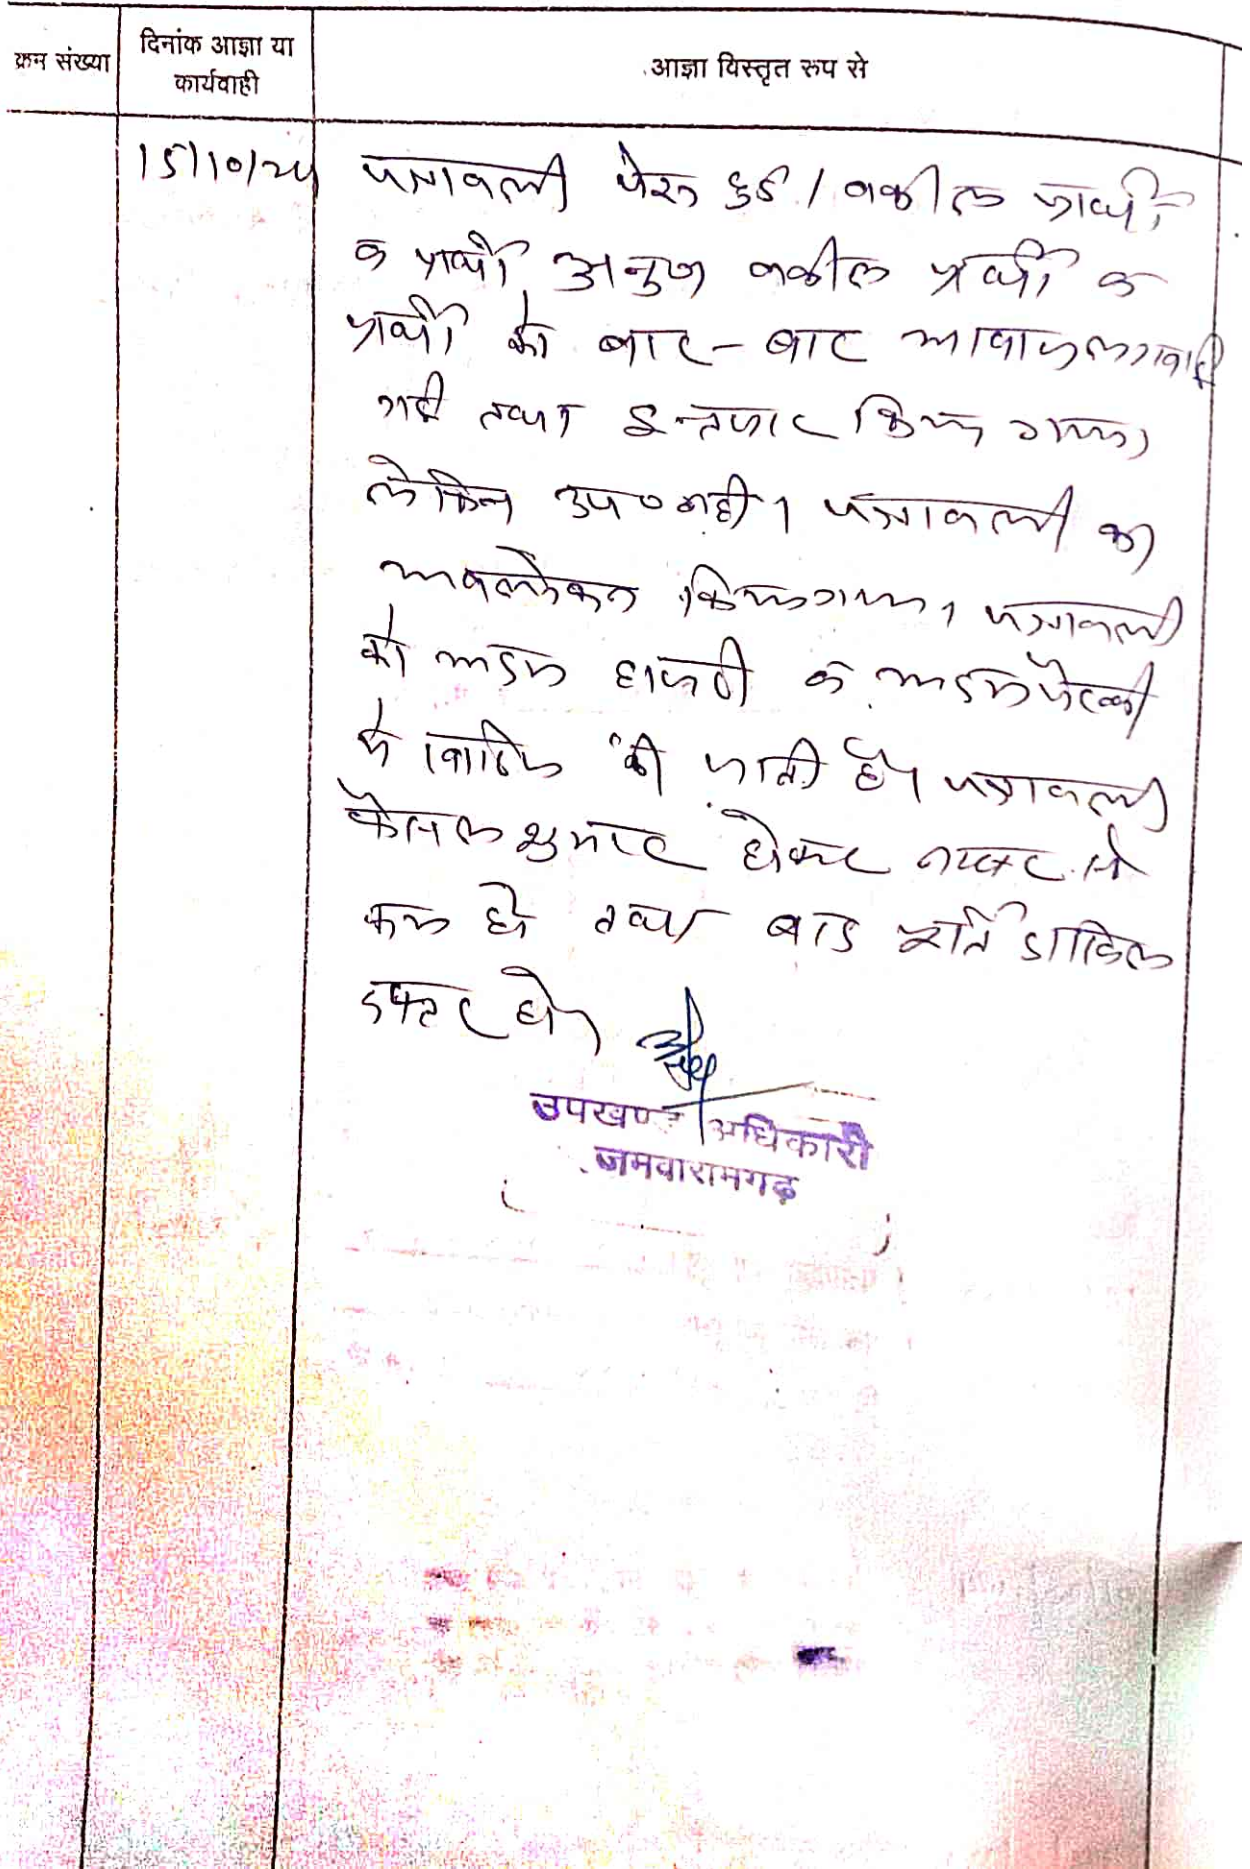 क्रम संख्या
दिनांक आज्ञा या
कार्यवाही
आज्ञा विस्तृत रूप से
15/10/24
पत्रावली पेश हुई। वकील प्रार्थी
व प्रार्थी अनु० वकील प्रार्थी व
प्रार्थी को बार-बार आवाज लगवाई
गई तथा इन्तजार किया गया।
लेकिन उप० नही। पत्रावली का
अवलोकन किया गया। पत्रावली
को अदम हाजरी व अदम पैरवी
मे खारिज की जाती है। पत्रावली
फैसल शुमार होकर नम्बर से
कम हो तथा बाद पूर्ति दाखिल
दफ्तर हो।
उपखण्ड अधिकारी
जमवारामगढ़